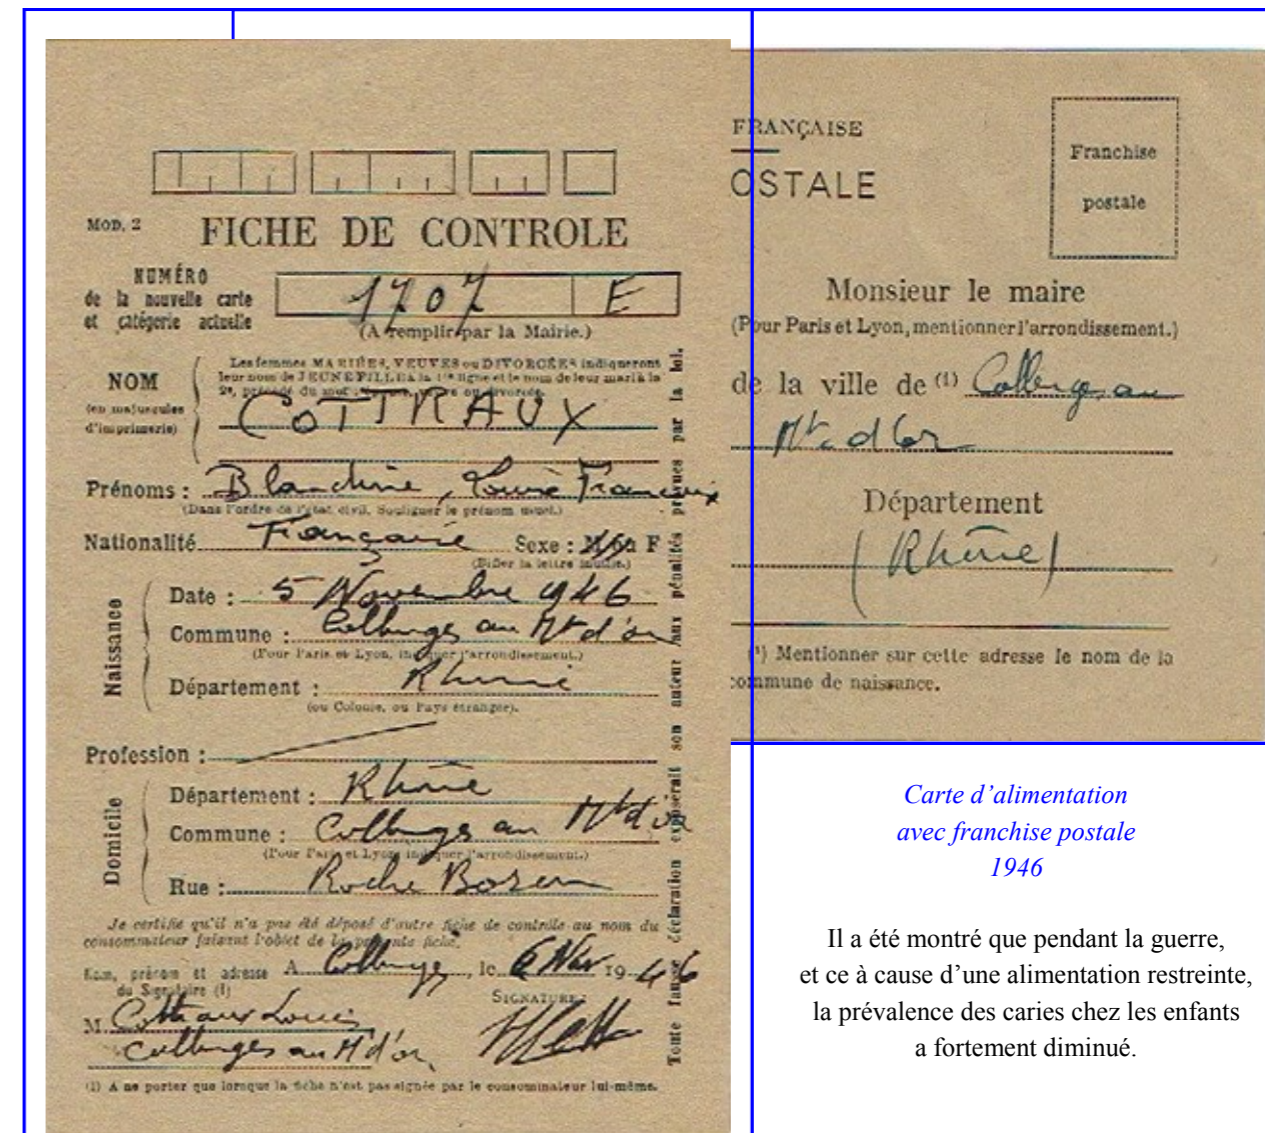 MOD. 2 FICHE DE CONTROLE
NUMÉRO
de la nouvelle carte
et catégorie actuelle
1707 E
(A remplir par la Mairie.)
NOM
(en majuscules
d'imprimerie)
Les femmes MARIÉES, VEUVES ou DIVORCÉES indiqueront
leur nom de JEUNE FILLE à la 1re ligne et le nom de leur mari à la
COTTRAUX
Prénoms : Blandine, Louise
(Dans l'ordre de l'état civil. Souligner le prénom usuel.)
Nationalité Française Sexe : M ou F
(Biffer la lettre inutile.)
Naissance
Date : 5 Novembre 1946
Commune : Collonges au Mt d'or
(Pour Paris et Lyon, indiquer l'arrondissement.)
Département : Rhône
(ou Colonie, ou Pays étranger).
Profession :
Domicile
Département : Rhône
Commune : Collonges au Mt d'or
(Pour Paris et Lyon, indiquer l'arrondissement.)
Rue : Roche
Je certifie qu'il n'a pas été déposé d'autre fiche de contrôle au nom du
consommateur faisant l'objet de la présente fiche.
Nom, prénom et adresse A Collonges, le 6 Nov 1946
du Signataire (1)
SIGNATURE :
M Cottraux Louis
Collonges au Mt d'or
(1) A ne porter que lorsque la fiche n'est pas signée par le consommateur lui-même.
Toute fausse déclaration exposerait son auteur aux pénalités prévues par la loi.
FRANÇAISE
OSTALE
Franchise
postale
Monsieur le maire
(Pour Paris et Lyon, mentionner l'arrondissement.)
de la ville de (1) Collonges au
Mt d'Or
Département
(Rhône)
(1) Mentionner sur cette adresse le nom de la
commune de naissance.
Carte d'alimentation
avec franchise postale
1946
Il a été montré que pendant la guerre,
et ce à cause d'une alimentation restreinte,
la prévalence des caries chez les enfants
a fortement diminué.